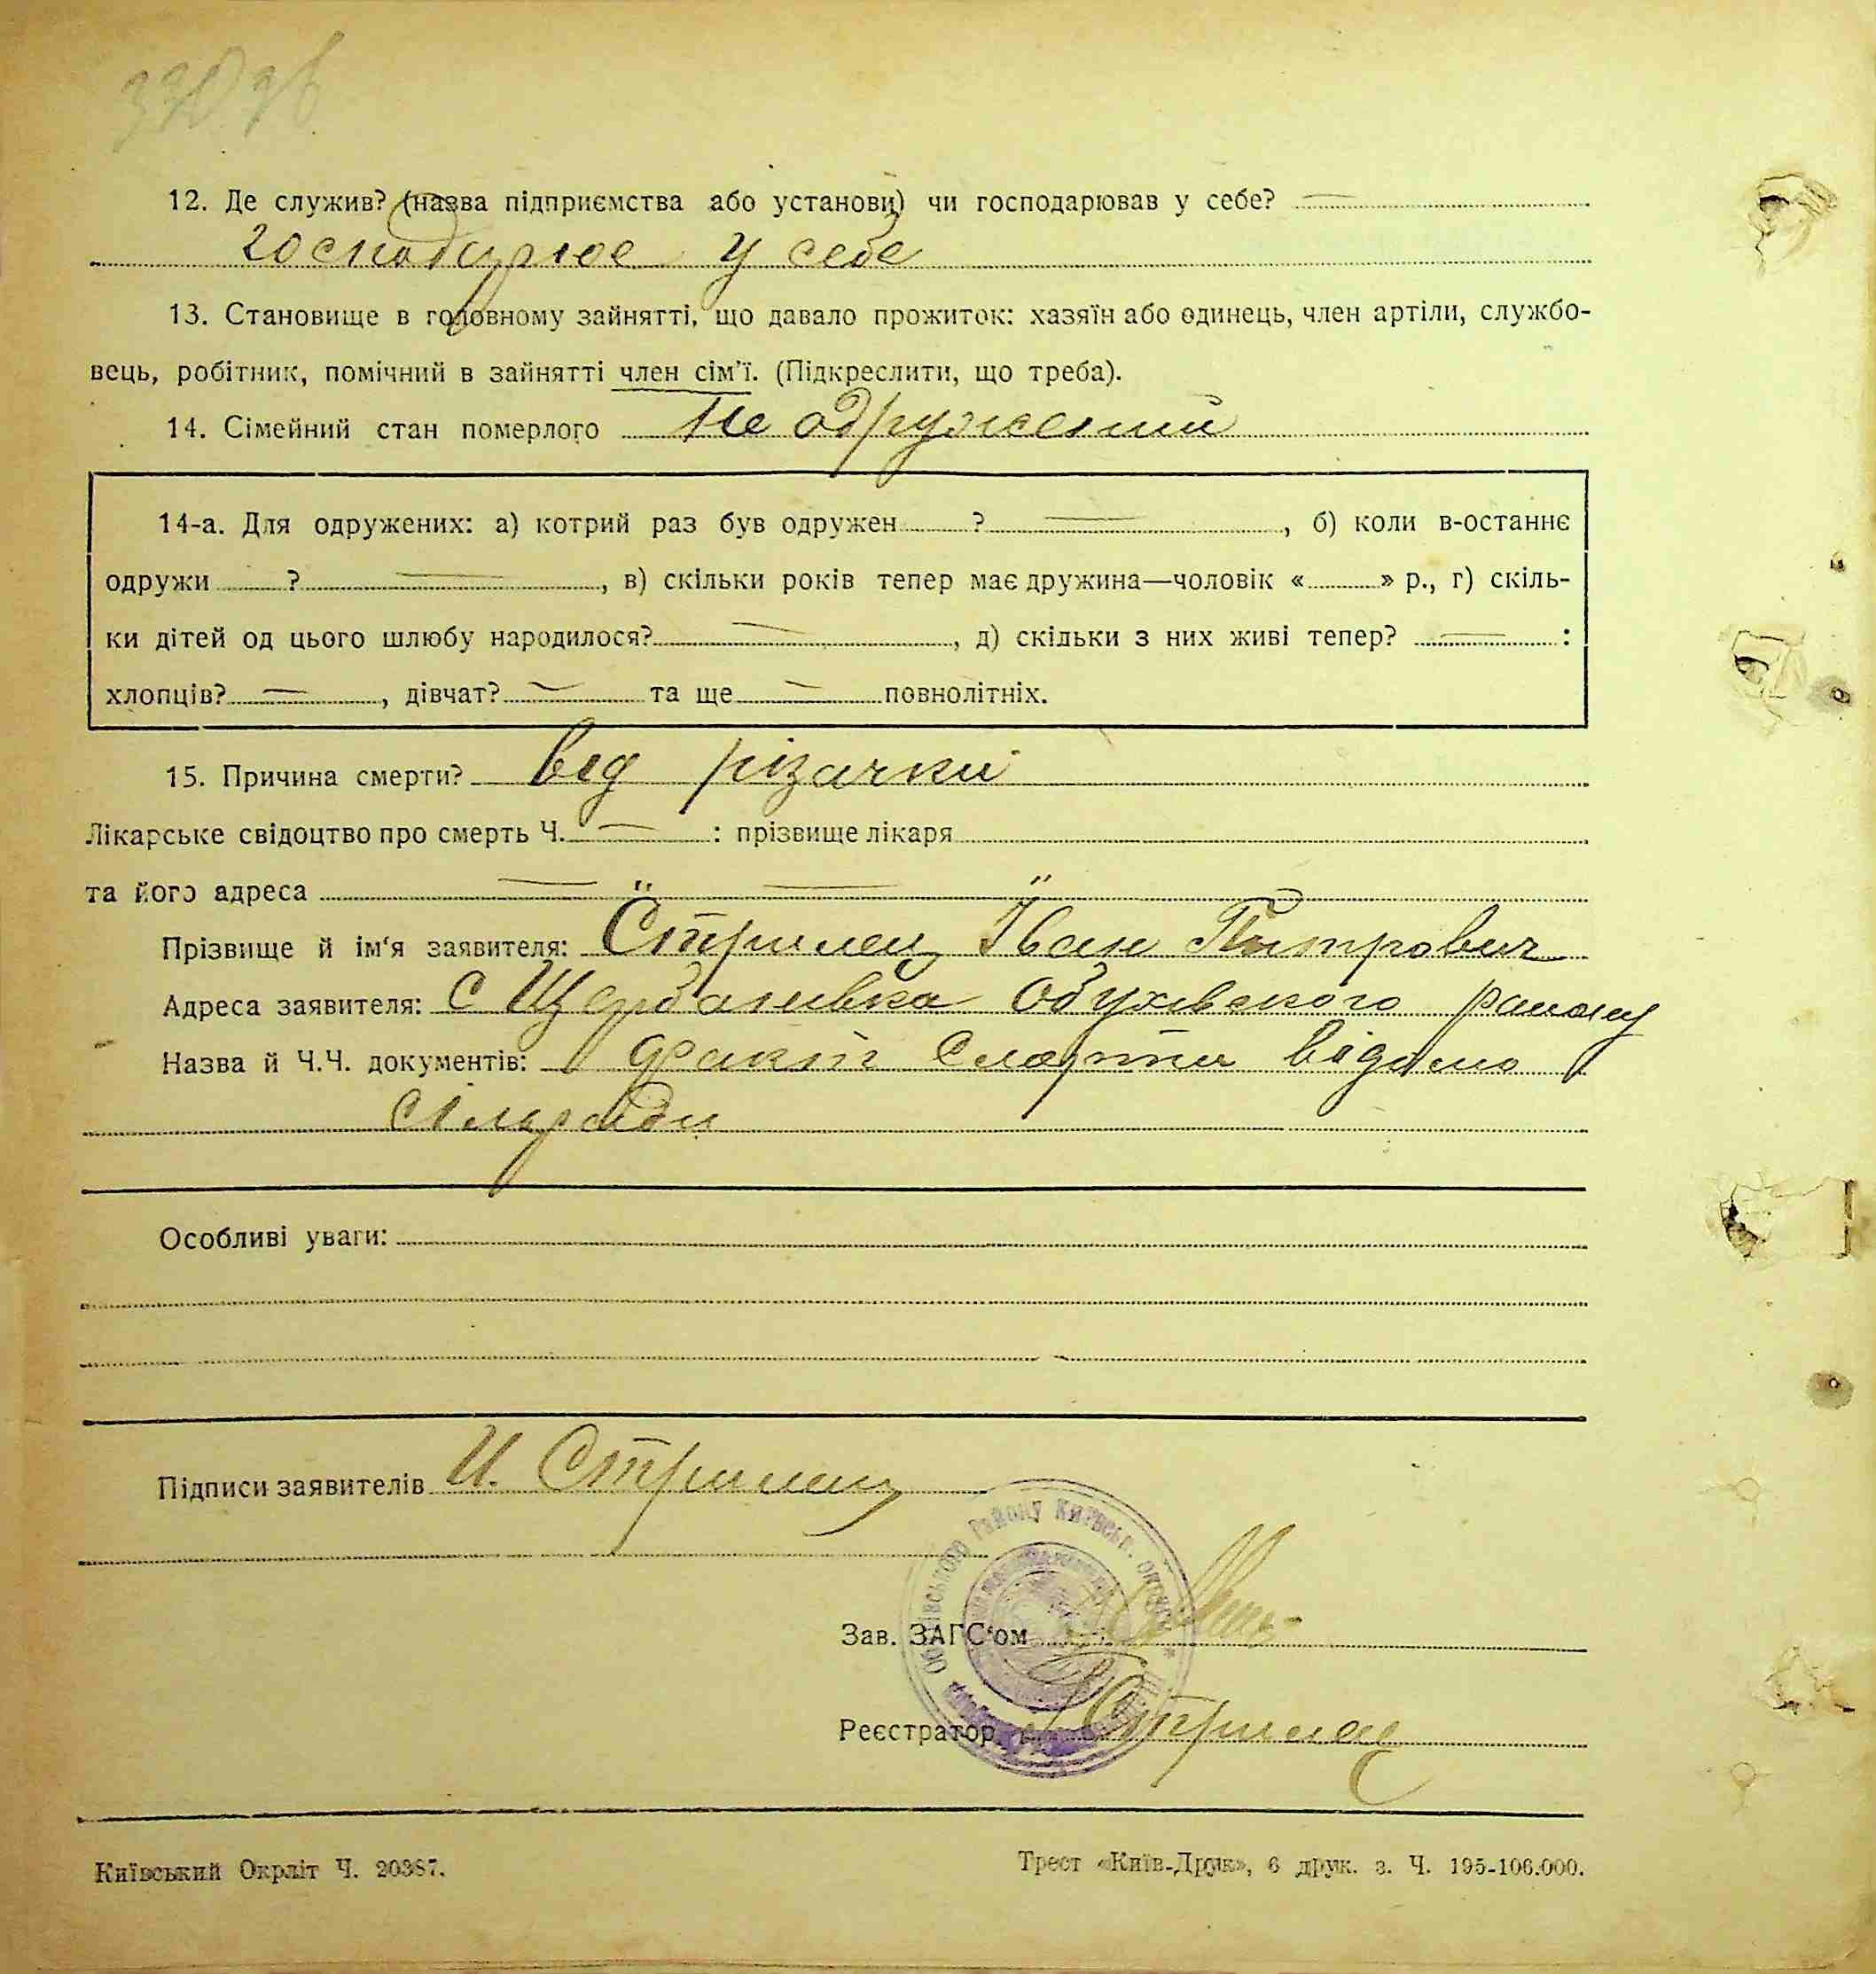 12. Де служив? (назва підприємства або установи) чи господарював у себе? —
господарює у себе
13. Становище в головному зайнятті, що давало прожиток: хазяїн або одинець, член артіли, службо-
вець, робітник, помічний в зайнятті член сім'ї. (Підкреслити, що треба).
14. Сімейний стан померлого Не одружений
14-а. Для одружених: а) котрий раз був одружен ? — , б) коли в-останнє
одружи ? — , в) скільки років тепер має дружина—чоловік « » р., г) скіль-
ки дітей од цього шлюбу народилося? — , д) скільки з них живі тепер? — :
хлопців? — , дівчат? — та ще — повнолітніх.
15. Причина смерти? від різачки
Лікарське свідоцтво про смерть Ч. — : прізвище лікаря
та його адреса — " — "
Прізвище й ім'я заявителя: Стрилец Іван Питрович
Адреса заявителя: с Щербанивка Обухівського району
Назва й Ч.Ч. документів: факт смерти відомо
сільради
Особливі уваги:
Підписи заявителів И. Стрилец
Обухівського Району Київськ. округи
Зав. ЗАГС'ом
Реєстратор Стрилец
Київський Окрліт Ч. 20387.
Трест «Київ-Друк», 6 друк. з. Ч. 195-106.000.